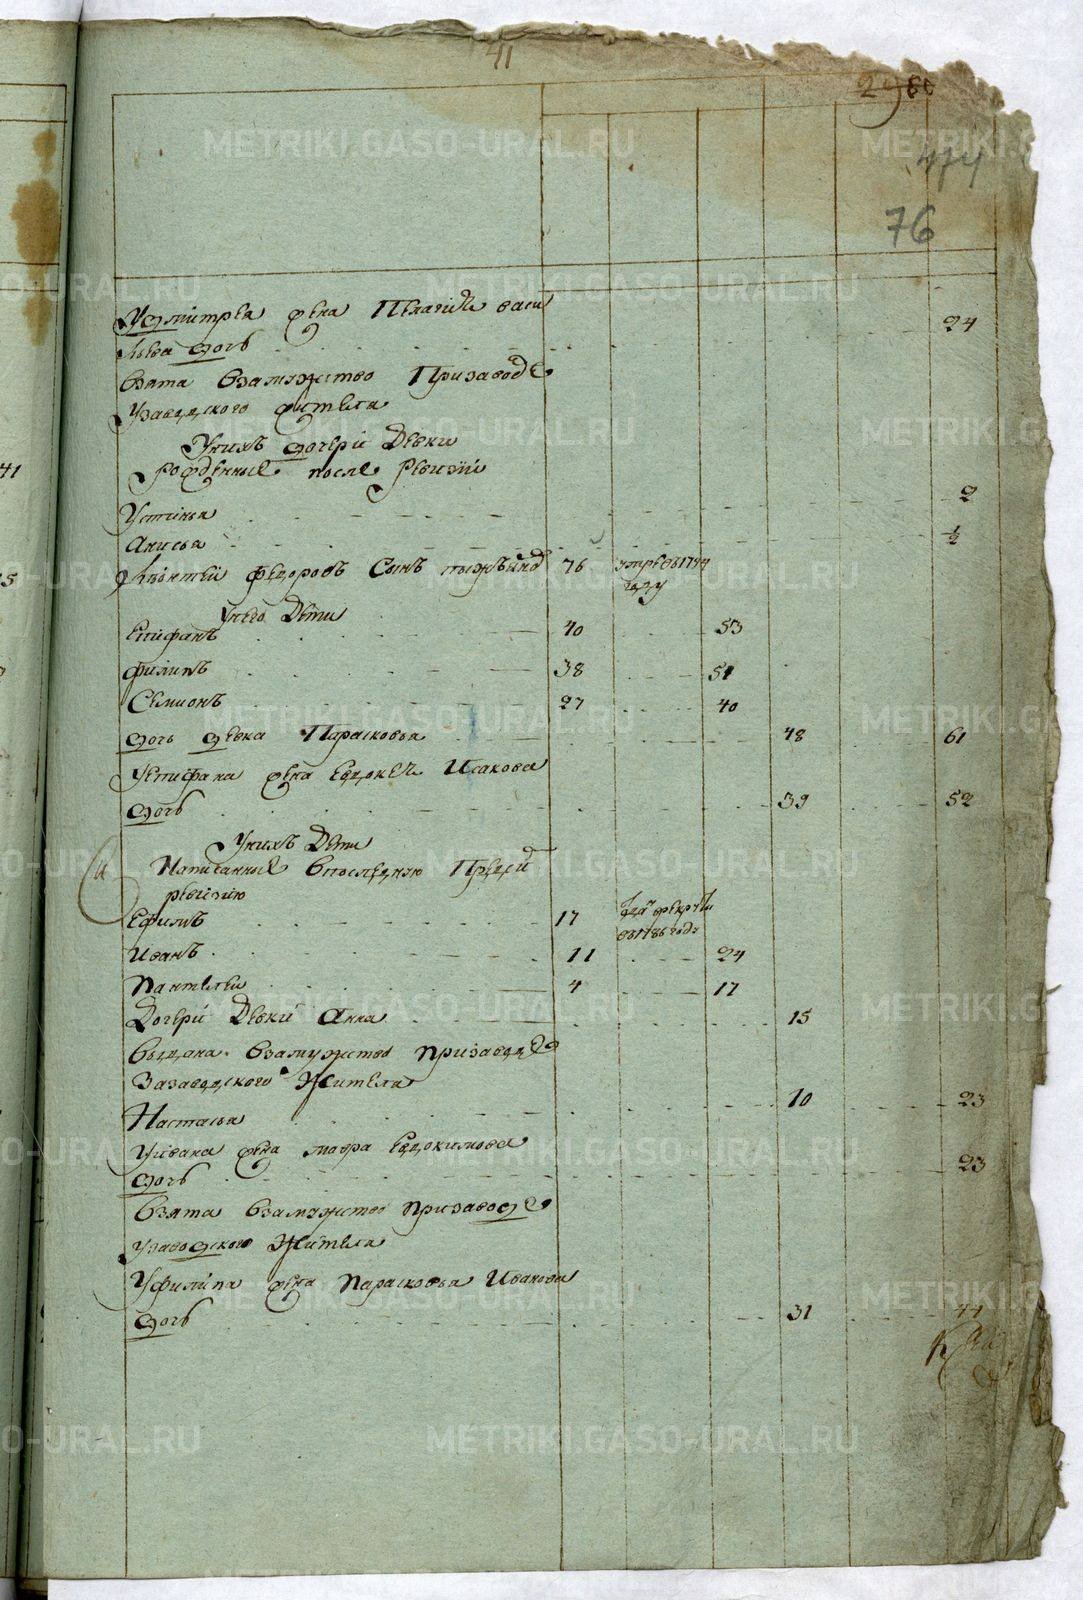 41
2980
474
76
Удмитрея жена Пелагия васи
льева дочь 24
Взята взамужство Призаводе
Узаводского жителя
Унихъ дочери Девки
рожденные после Ревизии
Устинья 2
Анисья ½
Федоровъ Сынъ 76 умре въ 1794 году
Унего Дети
Епифанъ 40 53
Филипъ 38 51
Семионъ 27 40
дочь девка Парасковья 48 61
Уепифана жена Евдокея Исакова
дочь 39 52
Унихъ Дети
Написанные впоследнюю Пред
ревизию
Ефимъ 17 въ 1786 году
Иванъ 11 24
Пантелей 4 17
Дочери Девки Анна 15
выдана взамужство призаводе
Зазаводского Жителя
Настасья 10 23
Уивана жена мавра Евдокимова
дочь 23
Взята взамужство призаводе
узаводского Жителя
Уфилипа жена Парасковья Иванова
дочь 31 44
METRIKI.GASO-URAL.RU